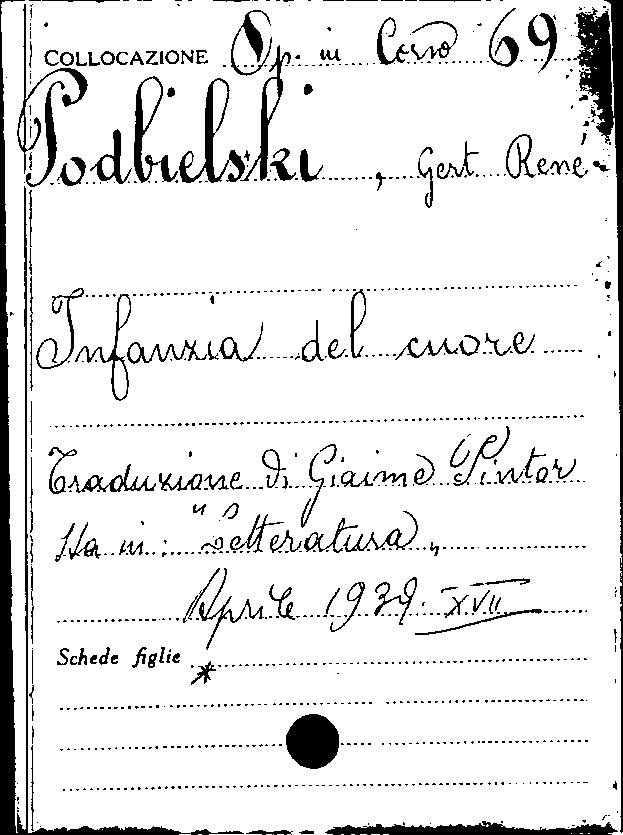 COLLOCAZIONE Op. in Corso 69
Podbielski, Gert René
Infanzia del cuore
Traduzione di Giaime Pintor
Sta in: "Letteratura"
Aprile 1939. XVII
Schede figlie
*